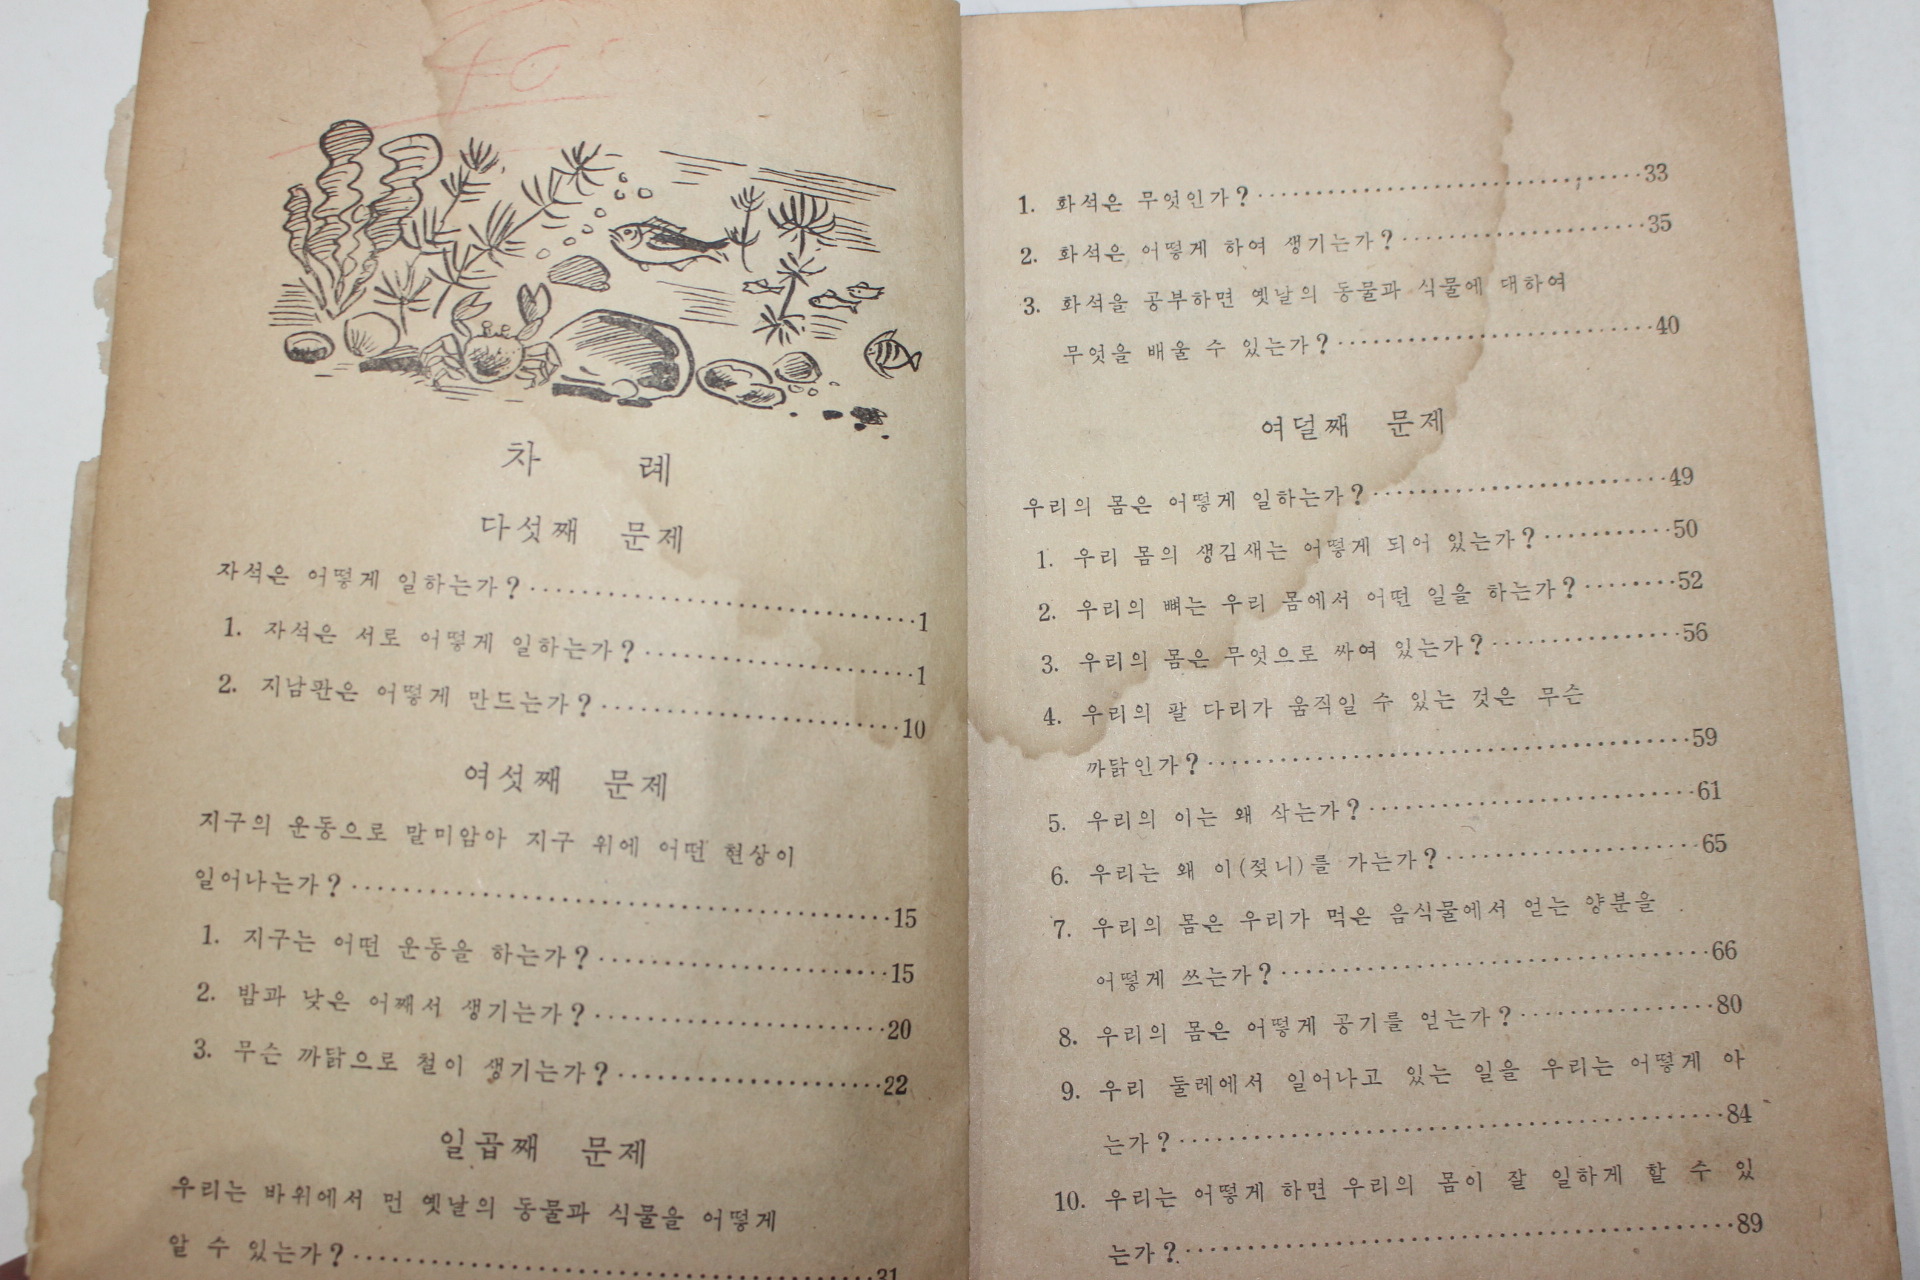 차 례
다섯째 문제
자석은 어떻게 일하는가?……………………1
1. 자석은 서로 어떻게 일하는가?……………………1
2. 지남관은 어떻게 만드는가?……………………10
여섯째 문제
지구의 운동으로 말미암아 지구 위에 어떤 현상이
일어나는가?……………………15
1. 지구는 어떤 운동을 하는가?……………………15
2. 밤과 낮은 어째서 생기는가?……………………20
3. 무슨 까닭으로 철이 생기는가?……………………22
일곱째 문제
우리는 바위에서 먼 옛날의 동물과 식물을 어떻게
알 수 있는가?……………………31
1. 화석은 무엇인가?……………………33
2. 화석은 어떻게 하여 생기는가?……………………35
3. 화석을 공부하면 옛날의 동물과 식물에 대하여
무엇을 배울 수 있는가?……………………40
여덟째 문제
우리의 몸은 어떻게 일하는가?……………………49
1. 우리 몸의 생김새는 어떻게 되어 있는가?……………………50
2. 우리의 뼈는 우리 몸에서 어떤 일을 하는가?……………………52
3. 우리의 몸은 무엇으로 싸여 있는가?……………………56
4. 우리의 팔 다리가 움직일 수 있는 것은 무슨
까닭인가?……………………59
5. 우리의 이는 왜 삭는가?……………………61
6. 우리는 왜 이(젖니)를 가는가?……………………65
7. 우리의 몸은 우리가 먹은 음식물에서 얻는 양분을
어떻게 쓰는가?……………………66
8. 우리의 몸은 어떻게 공기를 얻는가?……………………80
9. 우리 둘레에서 일어나고 있는 일을 우리는 어떻게 아
는가?……………………84
10. 우리는 어떻게 하면 우리의 몸이 잘 일하게 할 수 있
는가?……………………89